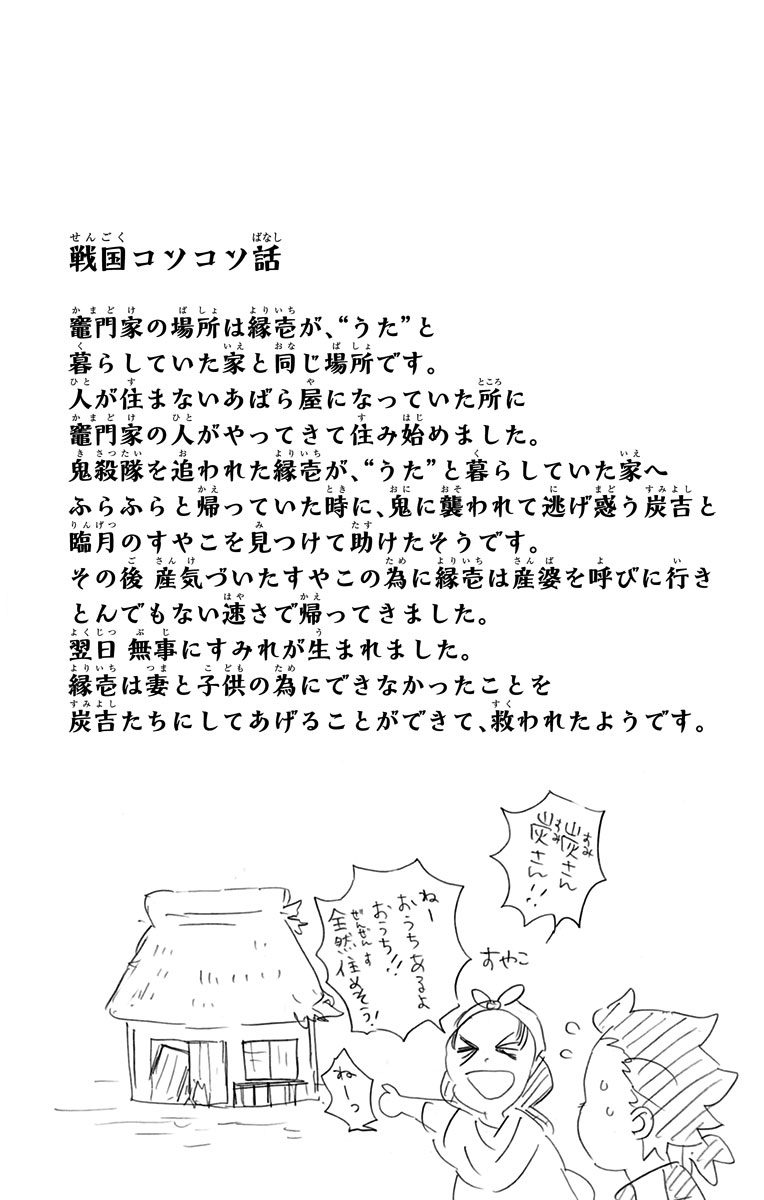 戦国コソコソ話
竈門家の場所は縁壱が、“うた”と
暮らしていた家と同じ場所です。
人が住まないあばら屋になっていた所に
竈門家の人がやってきて住み始めました。
鬼殺隊を追われた縁壱が、“うた”と暮らしていた家へ
ふらふらと帰っていた時に、鬼に襲われて逃げ惑う炭吉と
臨月のすやこを見つけて助けたそうです。
その後 産気づいたすやこの為に縁壱は産婆を呼びに行き
とんでもない速さで帰ってきました。
翌日 無事にすみれが生まれました。
縁壱は妻と子供の為にできなかったことを
炭吉たちにしてあげることができて、救われたようです。
炭さん
炭さん!!
ねー
おうちあるよ
おうち!!
全然住めそう!
ねーっ
すやこ